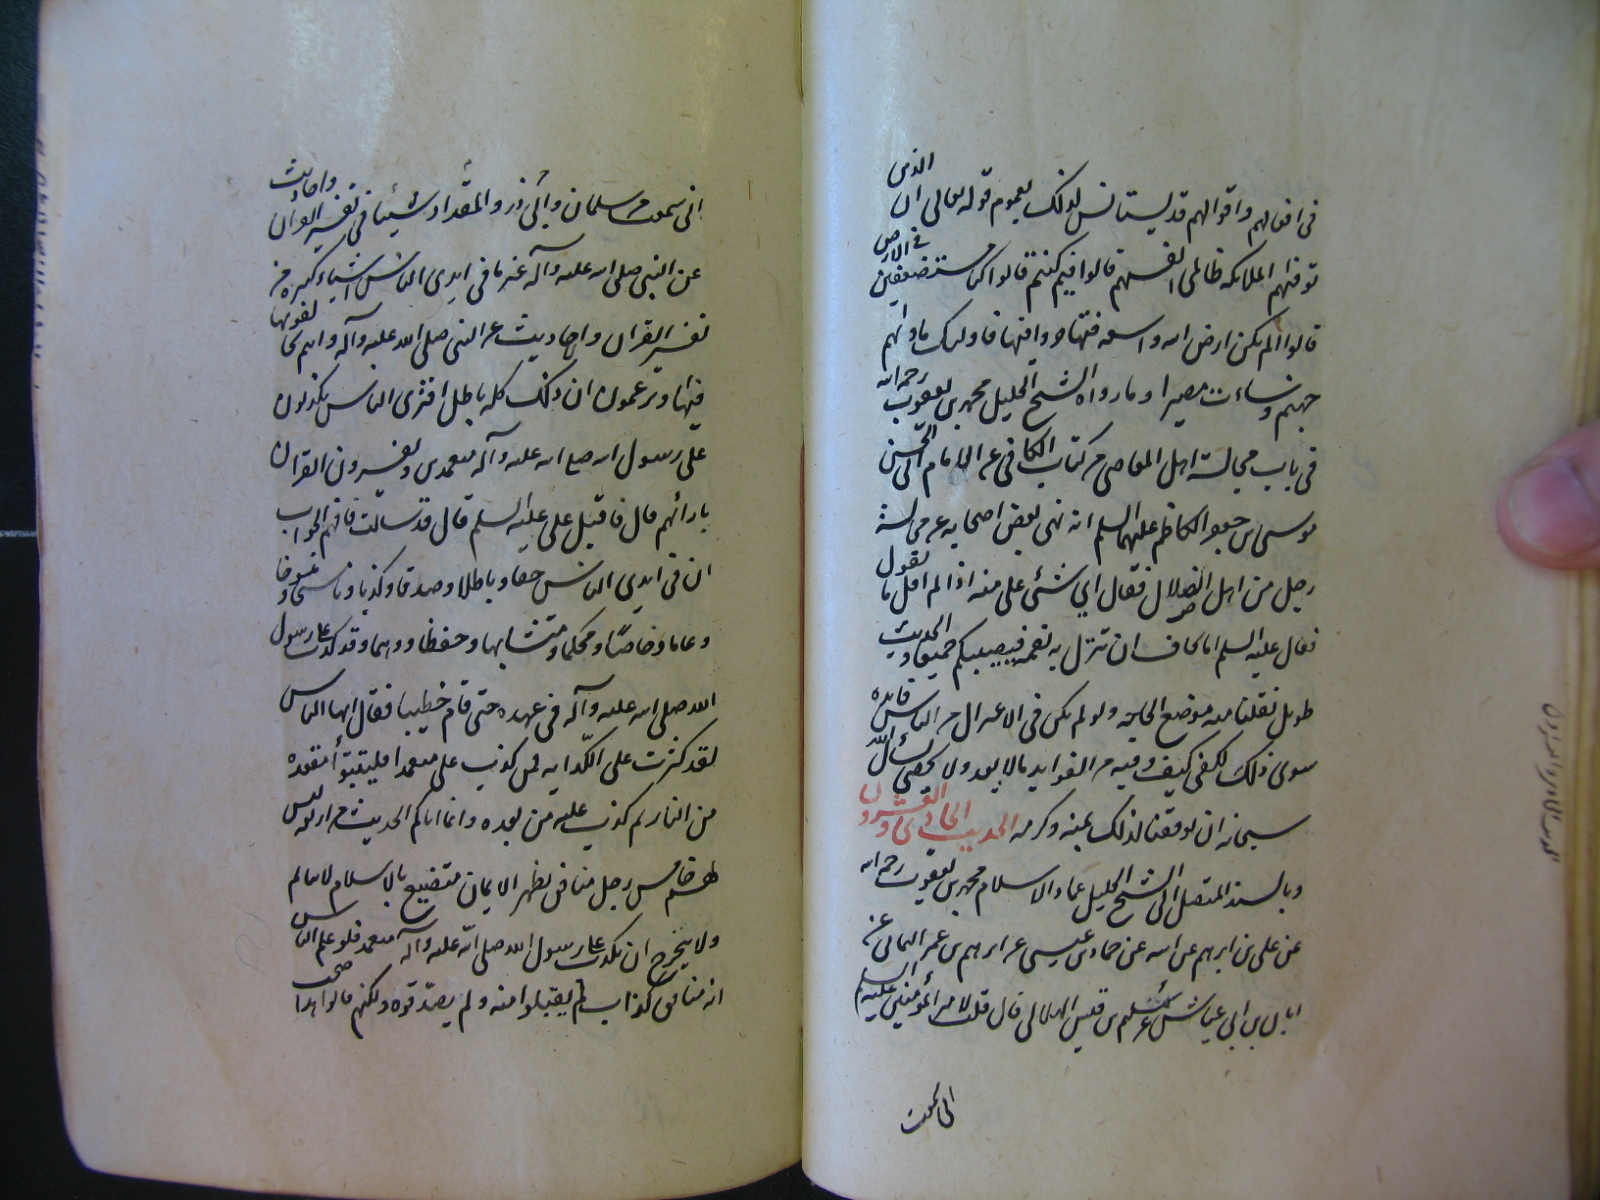 في افعالهم واقوالهم قد يستانس لذلك بعموم قوله تعالى ان الذين
توفيهم الملائكة ظالمى انفسهم قالوا فيم كنتم قالوا كنا مستضعفين في الارض
قالوا الم تكن ارض الله واسعة فتهاجروا فيها فاولئك ماويهم
جهنم وساءت مصيرا وما رواه الشيخ الجليل محمد بن يعقوب رحمه الله
في باب مجالسة اهل المعاصى من كتاب الكافى عن الامام ابى الحسن
موسى بن جعفر الكاظم عليهما السلم انه نهى بعض اصحابه عن مجالسة
رجل من اهل الضلال فقال اي شئ على منه اذا لم اقل ما يقول
فقال عليه السلم اما تخاف ان تنزل به نقمة فيصيبكم جميعا والحديث
طويل نقلنا منه موضع الحاجة ولو لم يكن في الاعتزال عن الناس فايدة
سوى ذلك لكفى كيف وفيه من الفوايد ما لا يعد ولا يحصى نسأل الله
سبحانه ان يوفقنا لذلك بمنه وكرمه الحديث الحادى والعشرون
وبالسند المتصل الى الشيخ الجليل عماد الاسلام محمد بن يعقوب رحمه الله
عن على بن ابرهيم عن ابيه عن حماد بن عيسى عن ابرهيم بن عمر اليمانى عن
ابان بن ابي عياش عن سليم بن قيس الهلالى قال قلت لامير المؤمنين عليه السلم
انى سمعت
انى سمعت من سلمان وأبى ذر والمقداد شيئا في تفسير القران واحاديث
عن النبي صلى الله عليه وآله غير ما في ايدى الناس اشياء كثيرة من
تفسير القران واحاديث عن النبى صلى الله عليه وآله وانتم تخالفونها
فيها وتزعمون ان ذلك كله باطل افترى الناس يكذبون
على رسول الله صلى الله عليه وآله متعمدين ويفسرون القران
بارائهم قال فاقبل على عليه السلم قال قد سالت فافهم الجواب
ان في ايدى الناس حقا وباطلا وصدقا وكذبا وناسخا ومنسوخا
وعاما وخاصا ومحكما ومتشابها وحفظا ووهما وقد كذب على رسول
الله صلى الله عليه وآله في عهده حتى قام خطيبا فقال ايها الناس
لقد كثرت على الكذابة فمن كذب على متعمدا فليتبوأ مقعده
من النار ثم كذب عليه من بعده وانما اتاكم الحديث من اربعة ليس
لهم خامس رجل منافق يظهر الايمان متصنع بالاسلام لا يتاثم
ولا يتحرج ان يكذب على رسول الله صلى الله عليه وآله متعمدا فلو علم الناس
انه منافق كذاب لم يقبلوا منه ولم يصدقوه ولكنهم قالوا هذا صحب